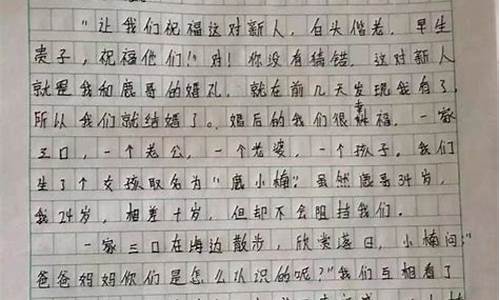 “让我们祝福这对新人，白头偕老，早生
贵子，祝福他们！”对！你没有猜错，这对新人
就是我和鹿哥的婚礼，就在前几天发现我有了，
所以我们就结婚了。婚后的我们很幸福，一家
三口，一个老公，一个老婆，一个孩子。我们
生了个女孩取名为“鹿小楠”虽然鹿哥34岁，
我24岁，相差十岁，但却不会阻挡我们。
一家三口在海边散步，欣赏落日，小楠问：
“爸爸妈妈你们是怎么认识的呢？”我们互相看了